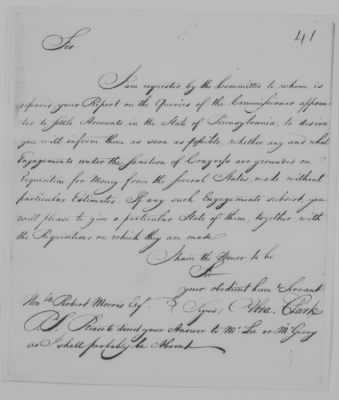 41
Sir
I am requested by the Committee to whom is
referred your Report on the Queries of the Commissioner appoin
ted to settle Accounts in the State of Pennsylvania, to desire
you will inform them as soon as possible, whether any and what
Engagements under the sanction of Congress are grounded on
requisition for Money from the several States made without
particular Estimates. If any such Engagements subsist, you
will please to give a particular State of them, together with
the Requisitions on which they are made
I have the Honor to be
Sir
your obedient hum Servant
Robert Morris Esqr. Signed Abra. Clark
P.S. Please to direct your Answer to Mr Lee or Mr Gerry
as I shall probably be Absent